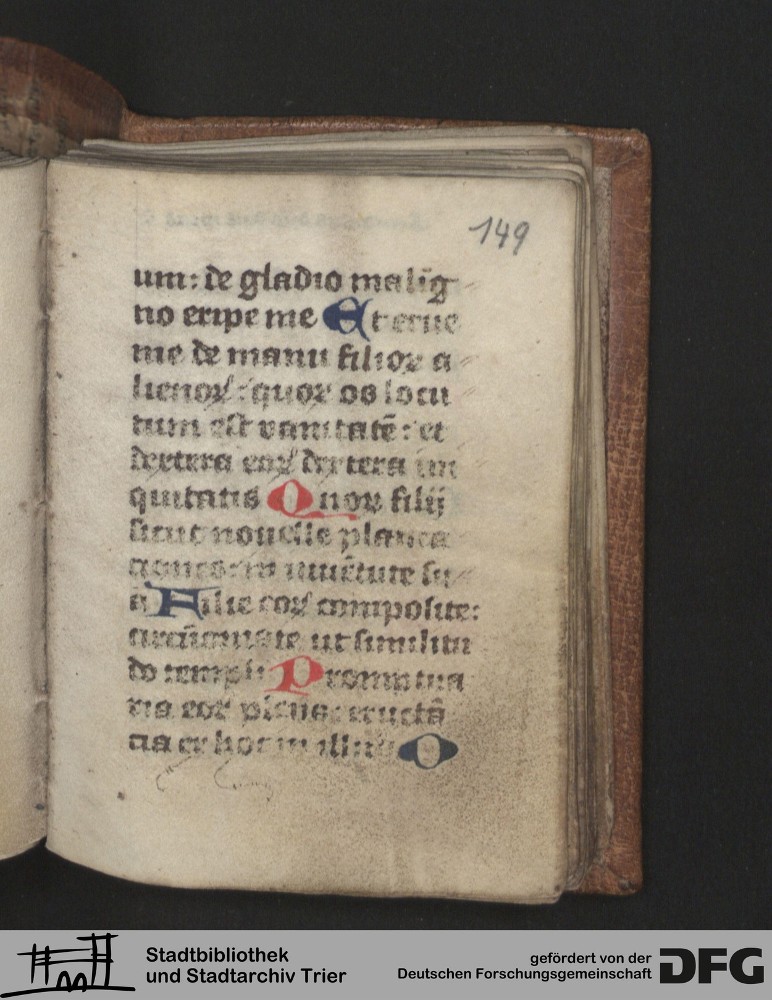 149
um: de gladio malig̅
no eripe me Et erue
me de manu filioꝝ a
lienoꝝ: quoꝝ os locu
tum est vanitatē: et
dextera eoꝝ dextera ini
quitatis Quoꝝ filij
sicut nouelle planta
ciones: in iuuētute su
a Filie eoꝝ composite:
circūornate ut similitu
do templi Promptua
ria eoꝝ plena: eructā
cia ex hoc in illud O
Stadtbibliothek
und Stadtarchiv Trier
gefördert von der
Deutschen Forschungsgemeinschaft
DFG